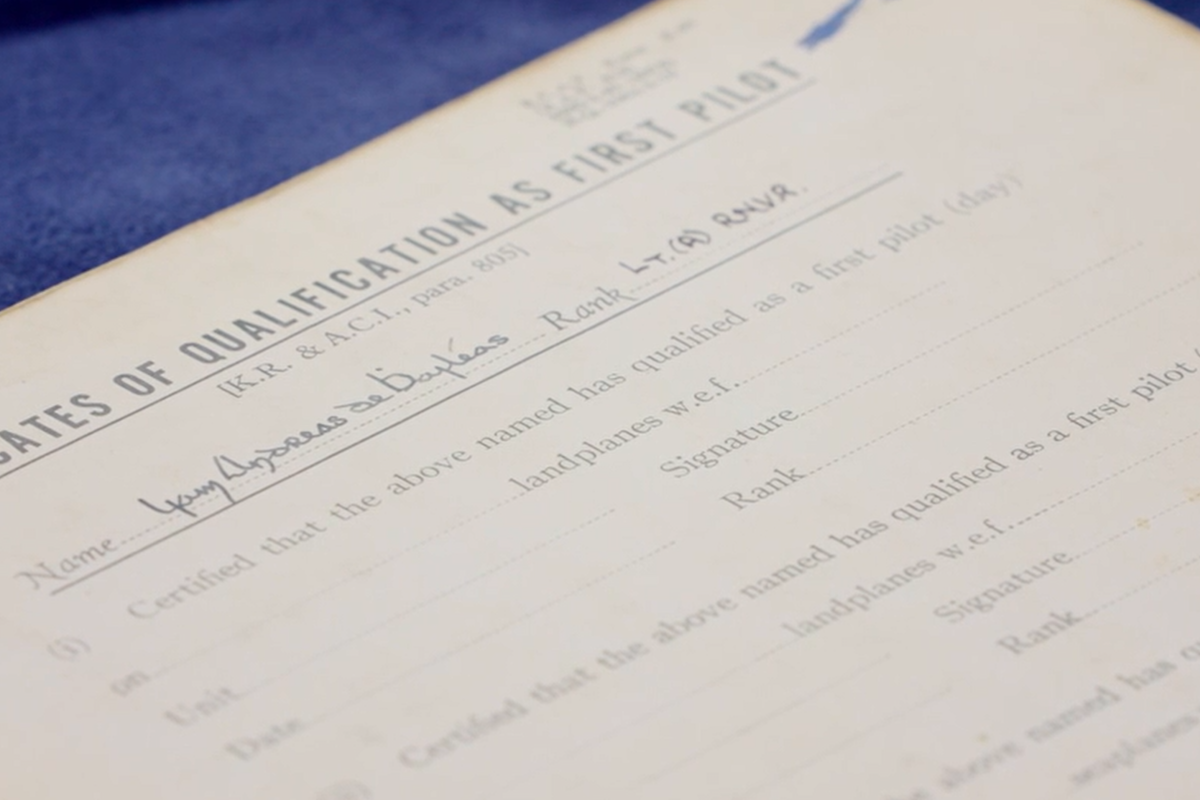 CATES OF QUALIFICATION AS FIRST PILOT
[K.R. & A.C.I., para. 805]
Name Andreas de Rank Lt. (A) RNVR.
(i) Certified that the above named has qualified as a first pilot (day)
on landplanes w.e.f.
Unit Signature
Date Rank
(ii) Certified that the above named has qualified as a first pilot (
landplanes w.e.f.
Signature
Rank
above named has qu
seaplanes